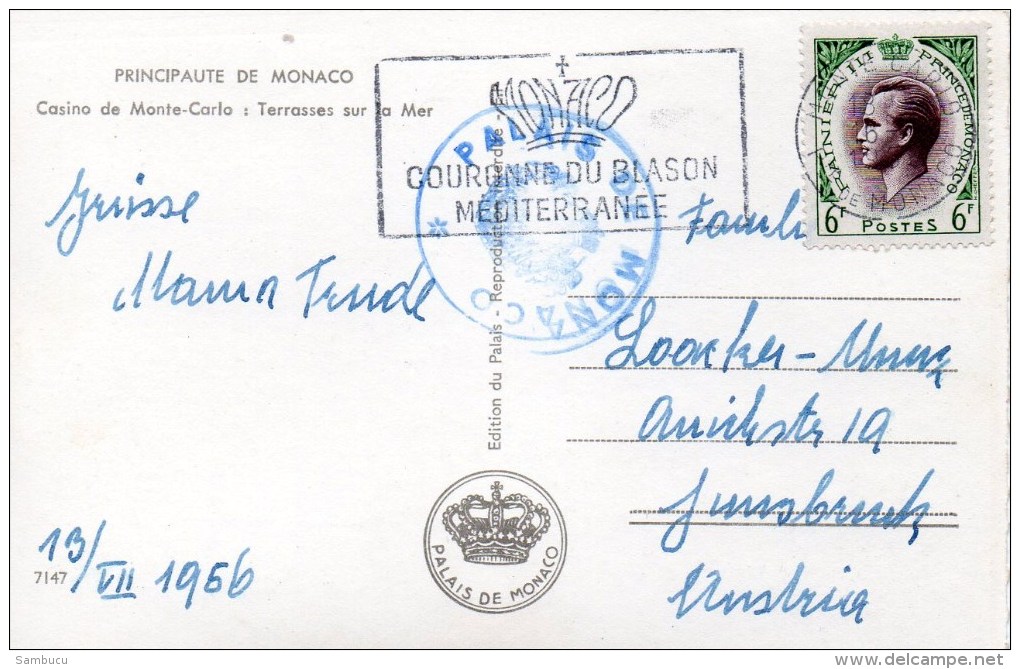 PRINCIPAUTE DE MONACO
Casino de Monte-Carlo : Terrasses sur la Mer
MONACO
COURONNE DU BLASON
MEDITERRANEE
PALAIS DE MONACO
RAINIER III PRINCE DE MONACO
6F POSTES 6F
Grüsse
Mama Trude
Edition du Palais - Reproduction interdite -
Famil
Loacker-
Anichstr 19
Innsbruck
Austria
13/VII 1956
7147
PALAIS DE MONACO
Sambucu
www.delcampe.net